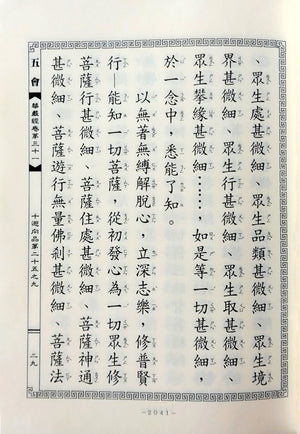 、眾生處甚微細、眾生品類甚微細、眾生境
界甚微細、眾生行甚微細、眾生取甚微細、
眾生攀緣甚微細……,如是等一切甚微細,
於一念中,悉能了知。
以無著無縛解脫心,立深志樂,修普賢
行—能知一切菩薩,從初發心為一切眾生修
菩薩行甚微細、菩薩住處甚微細、菩薩神通
甚微細、菩薩遊行無量佛剎甚微細、菩薩法
五會
華嚴經卷第三十一
十迴向品第二十五之九
二九
-2041-